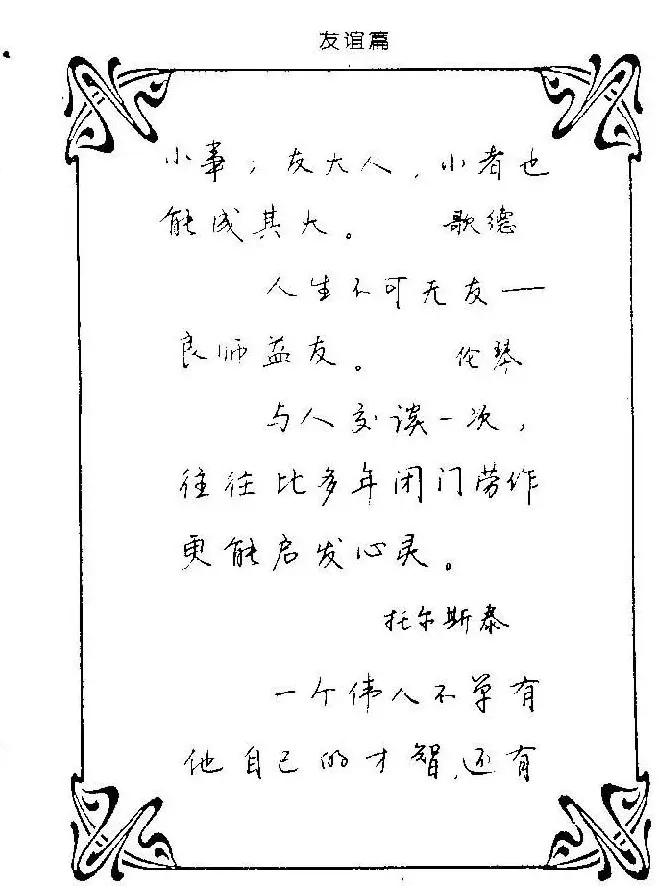 友谊篇
小事；友大人，小者也
能成其大。 歌德
人生不可无友——
良师益友。 伦琴
与人交谈一次，
往往比多年闭门劳作
更能启发心灵。
托尔斯泰
一个伟人不单有
他自己的才智，还有